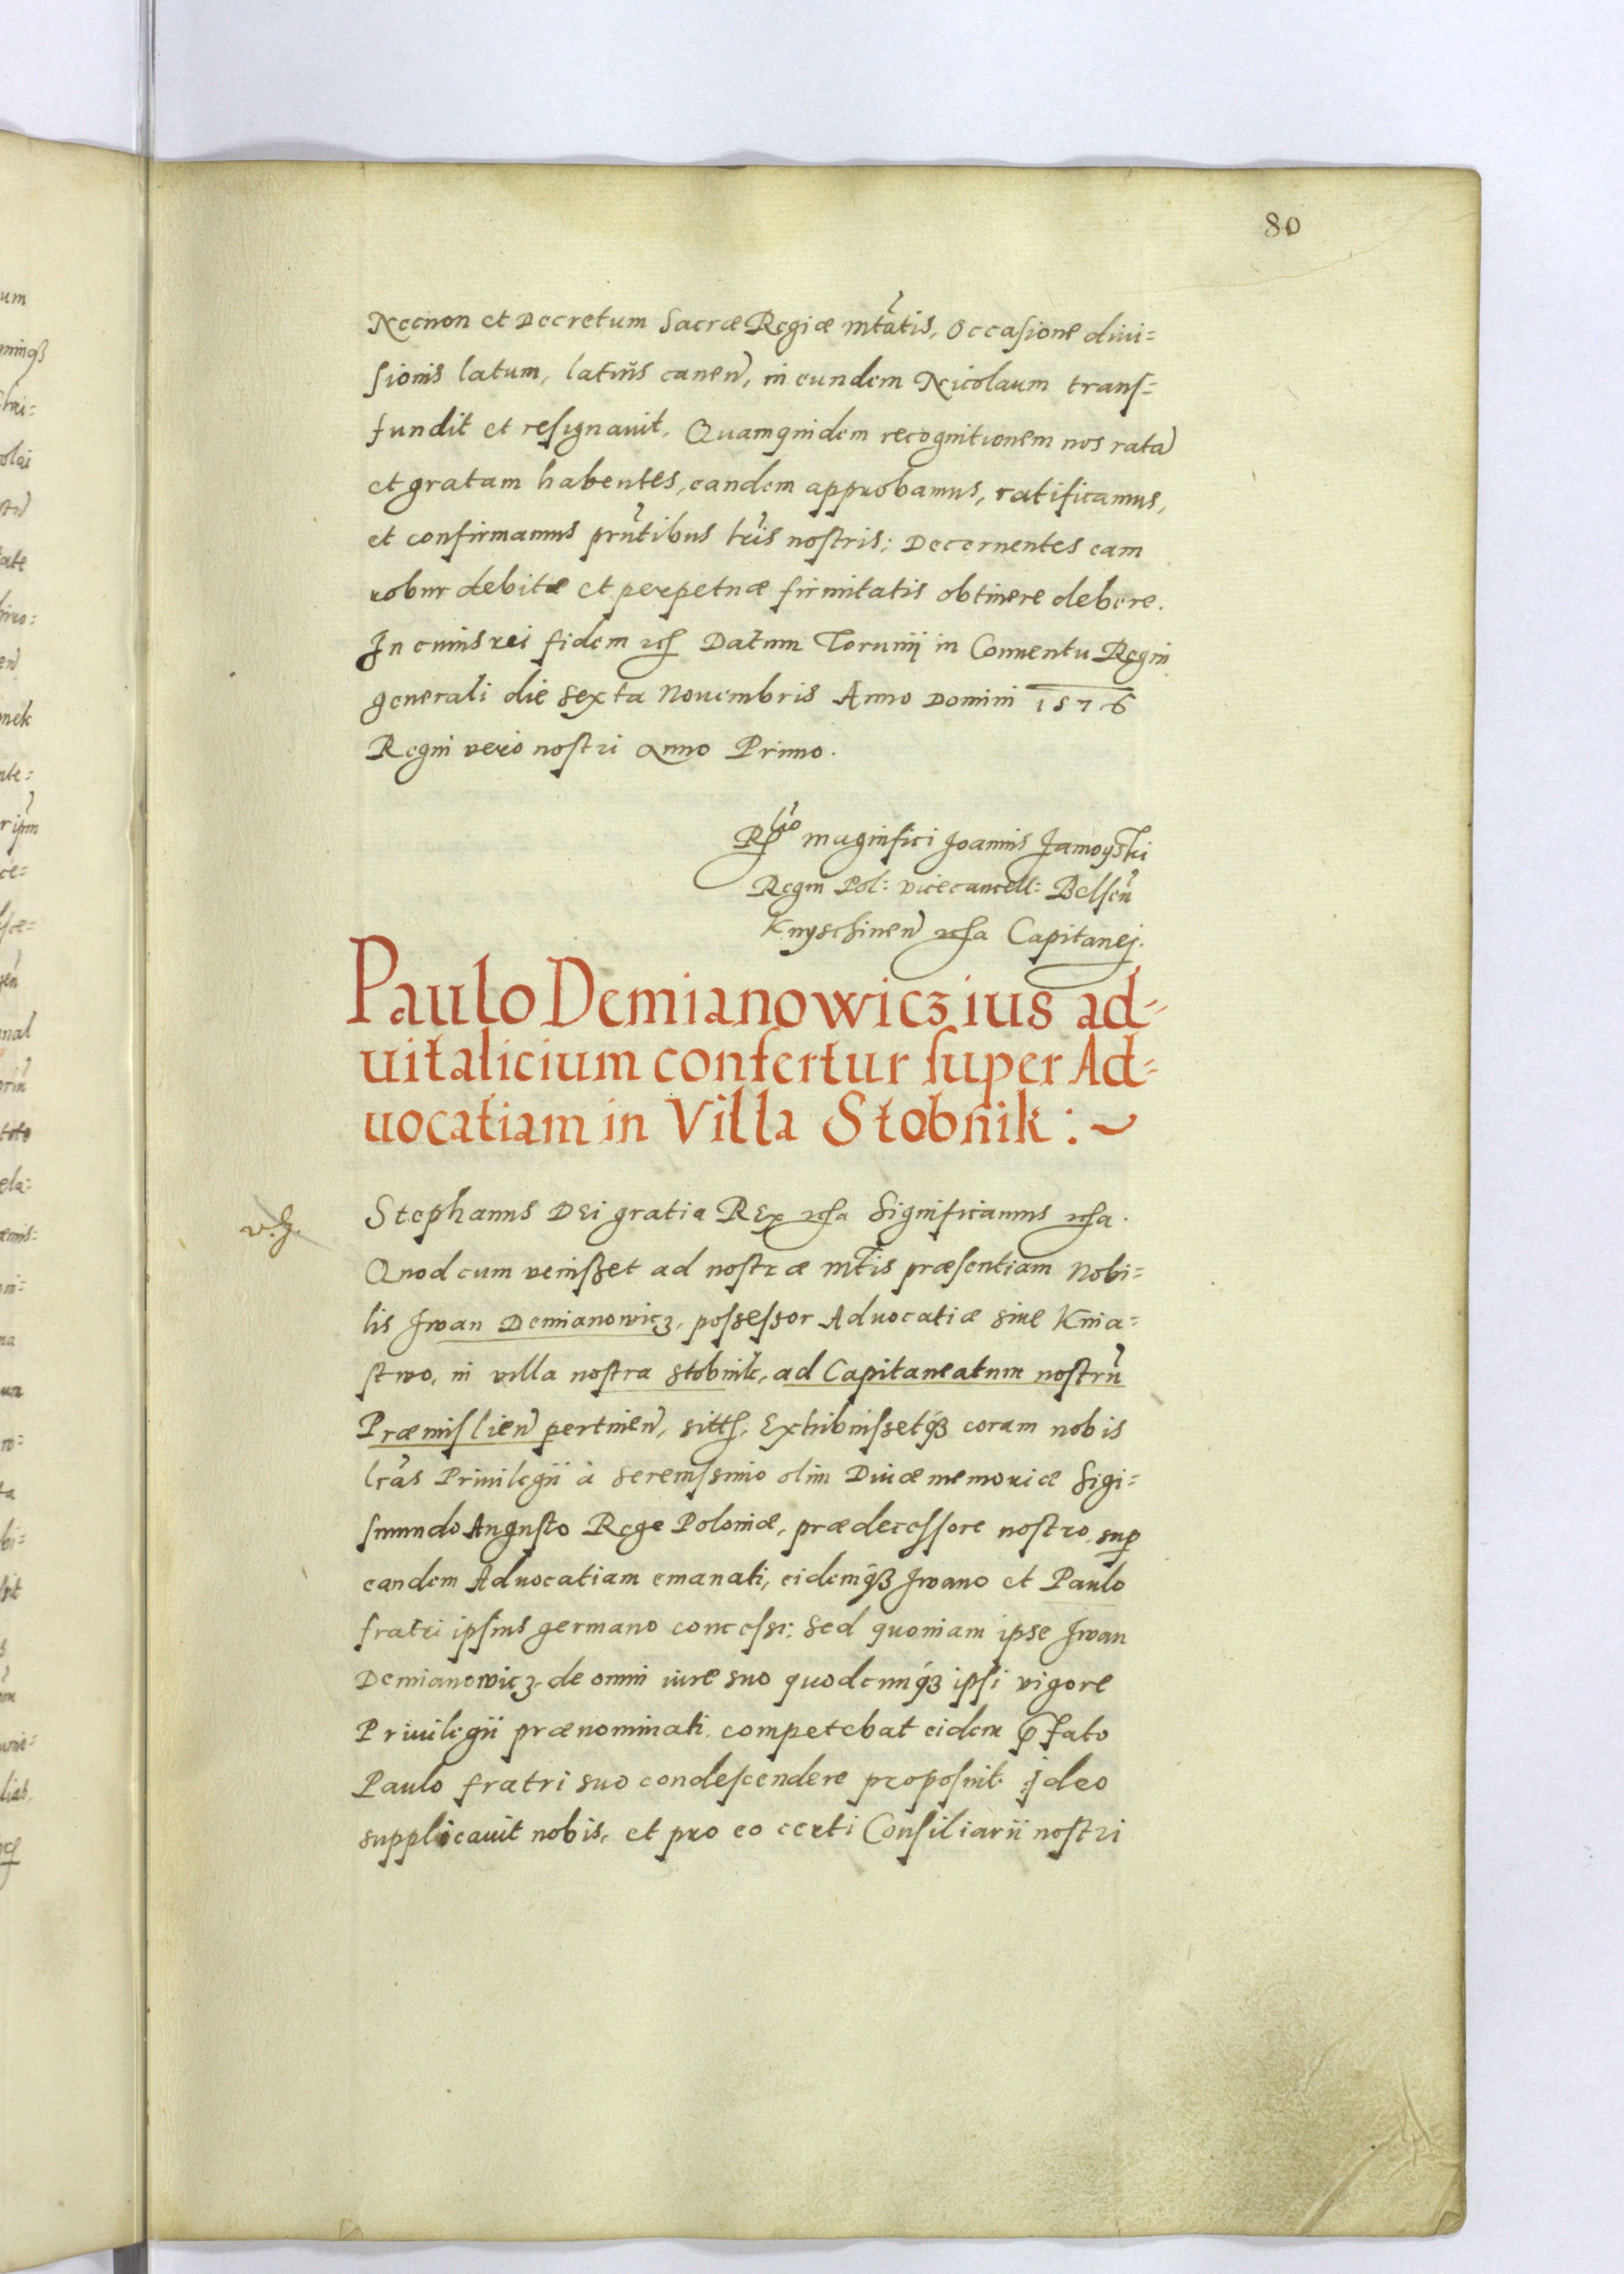 80
Necnon et Decretum Sacræ Regiæ mtãtis, Occasione diui=
sionis latum, latiũs canen̄, in eundem Nicolaum trans=
fundit et resignauit. Quamquidem recognitionem nos ratā
et gratam habentes, eandem approbamus, ratificamus,
et confirmamus prn̄tibus lr̄is nostris; Decernentes eam
robur debitæ et perpetuæ firmitatis obtinere debere.
In cuius rei fidem etc Datum Torunij in Conuentu Regni
generali die Sexta Nouembris Anno Domini 1576
Regni vero nostri Anno Primo.
Rlō magnifici Joannis Zamoyski
Regni Pol: vicecancell: Belsen̄
Knyschinen̄ etca Capitanej.
Paulo Demianowicz ius ad-
uitalicium confertur super Ad-
uocatiam in Villa Stobnik :~
Stephanus DEi gratia REx etca Significamus etca.
Quod cum venisset ad nostræ mt̄is præsentiam Nobi=
lis Iwan Demianowicz, possessor Aduocatiæ siue Knia=
stwo, in villa nostra Stobnik, ad Capitaneatum nostrū
Præmislien̄ pertinen̄, sitæ, Exhibuissetq3 coram nobis
lrās Priuilegii à Serenissimo olim Diuæ memoriæ Sigi=
smundo Augusto Rege Poloniæ, prædecessore nostro, sup
eandem Aduocatiam emanati, eidemq3 Iwano et Paulo
fratri ipsius germano concessi: Sed quoniam ipse Iwan
Demianowicz de omni iure suo quodcunq3 ipsi vigore
Priuilegii prænominati competebat eidem p̄fato
Paulo fratri suo condescendere proposuit. ideo
supplicauit nobis, et pro eo certi Consiliarii nostri